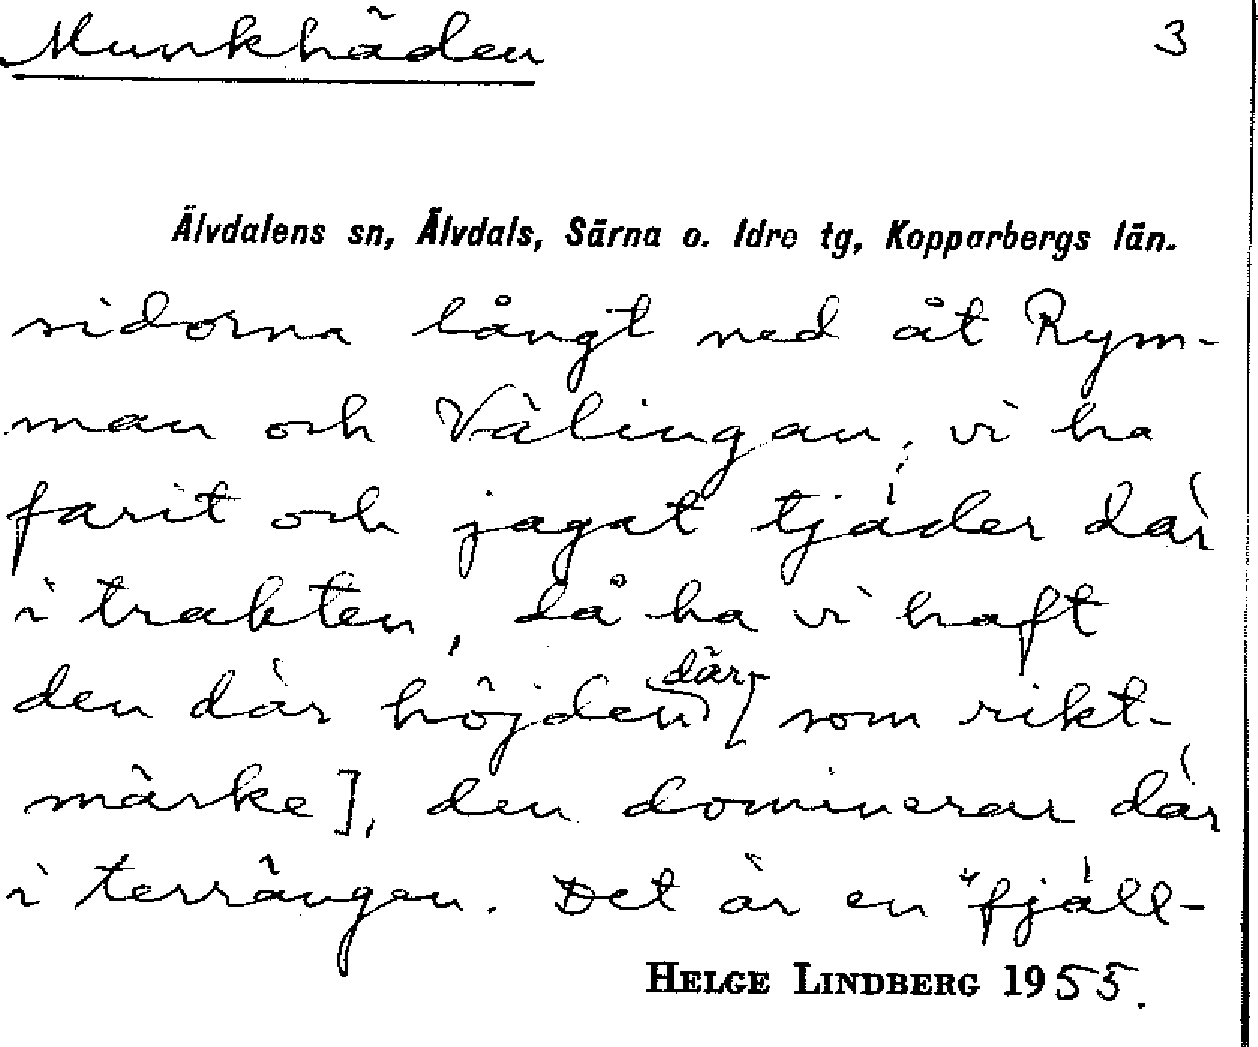 Munkhäden 3
Älvdalens sn, Älvdals, Särna o. Idre tg, Kopparbergs län.
sidorna långt ned åt Rym-
man och Vålingan, vi ha
farit och jagat tjäder där
i trakten, då ha vi haft
den där höjden där [som rikt-
märke], den dominerar där
i terrängen. Det är en "fjäll-
HELGE LINDBERG 1955.